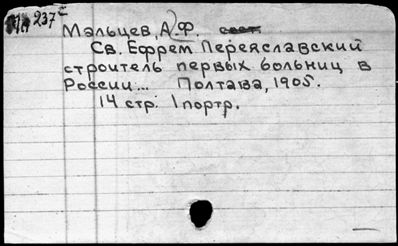 237с
Мальцев, А.Ф.
Св. Ефрем Переяславский
строитель первых больниц в
России... Полтава, 1905.
14 стр. 1 портр.